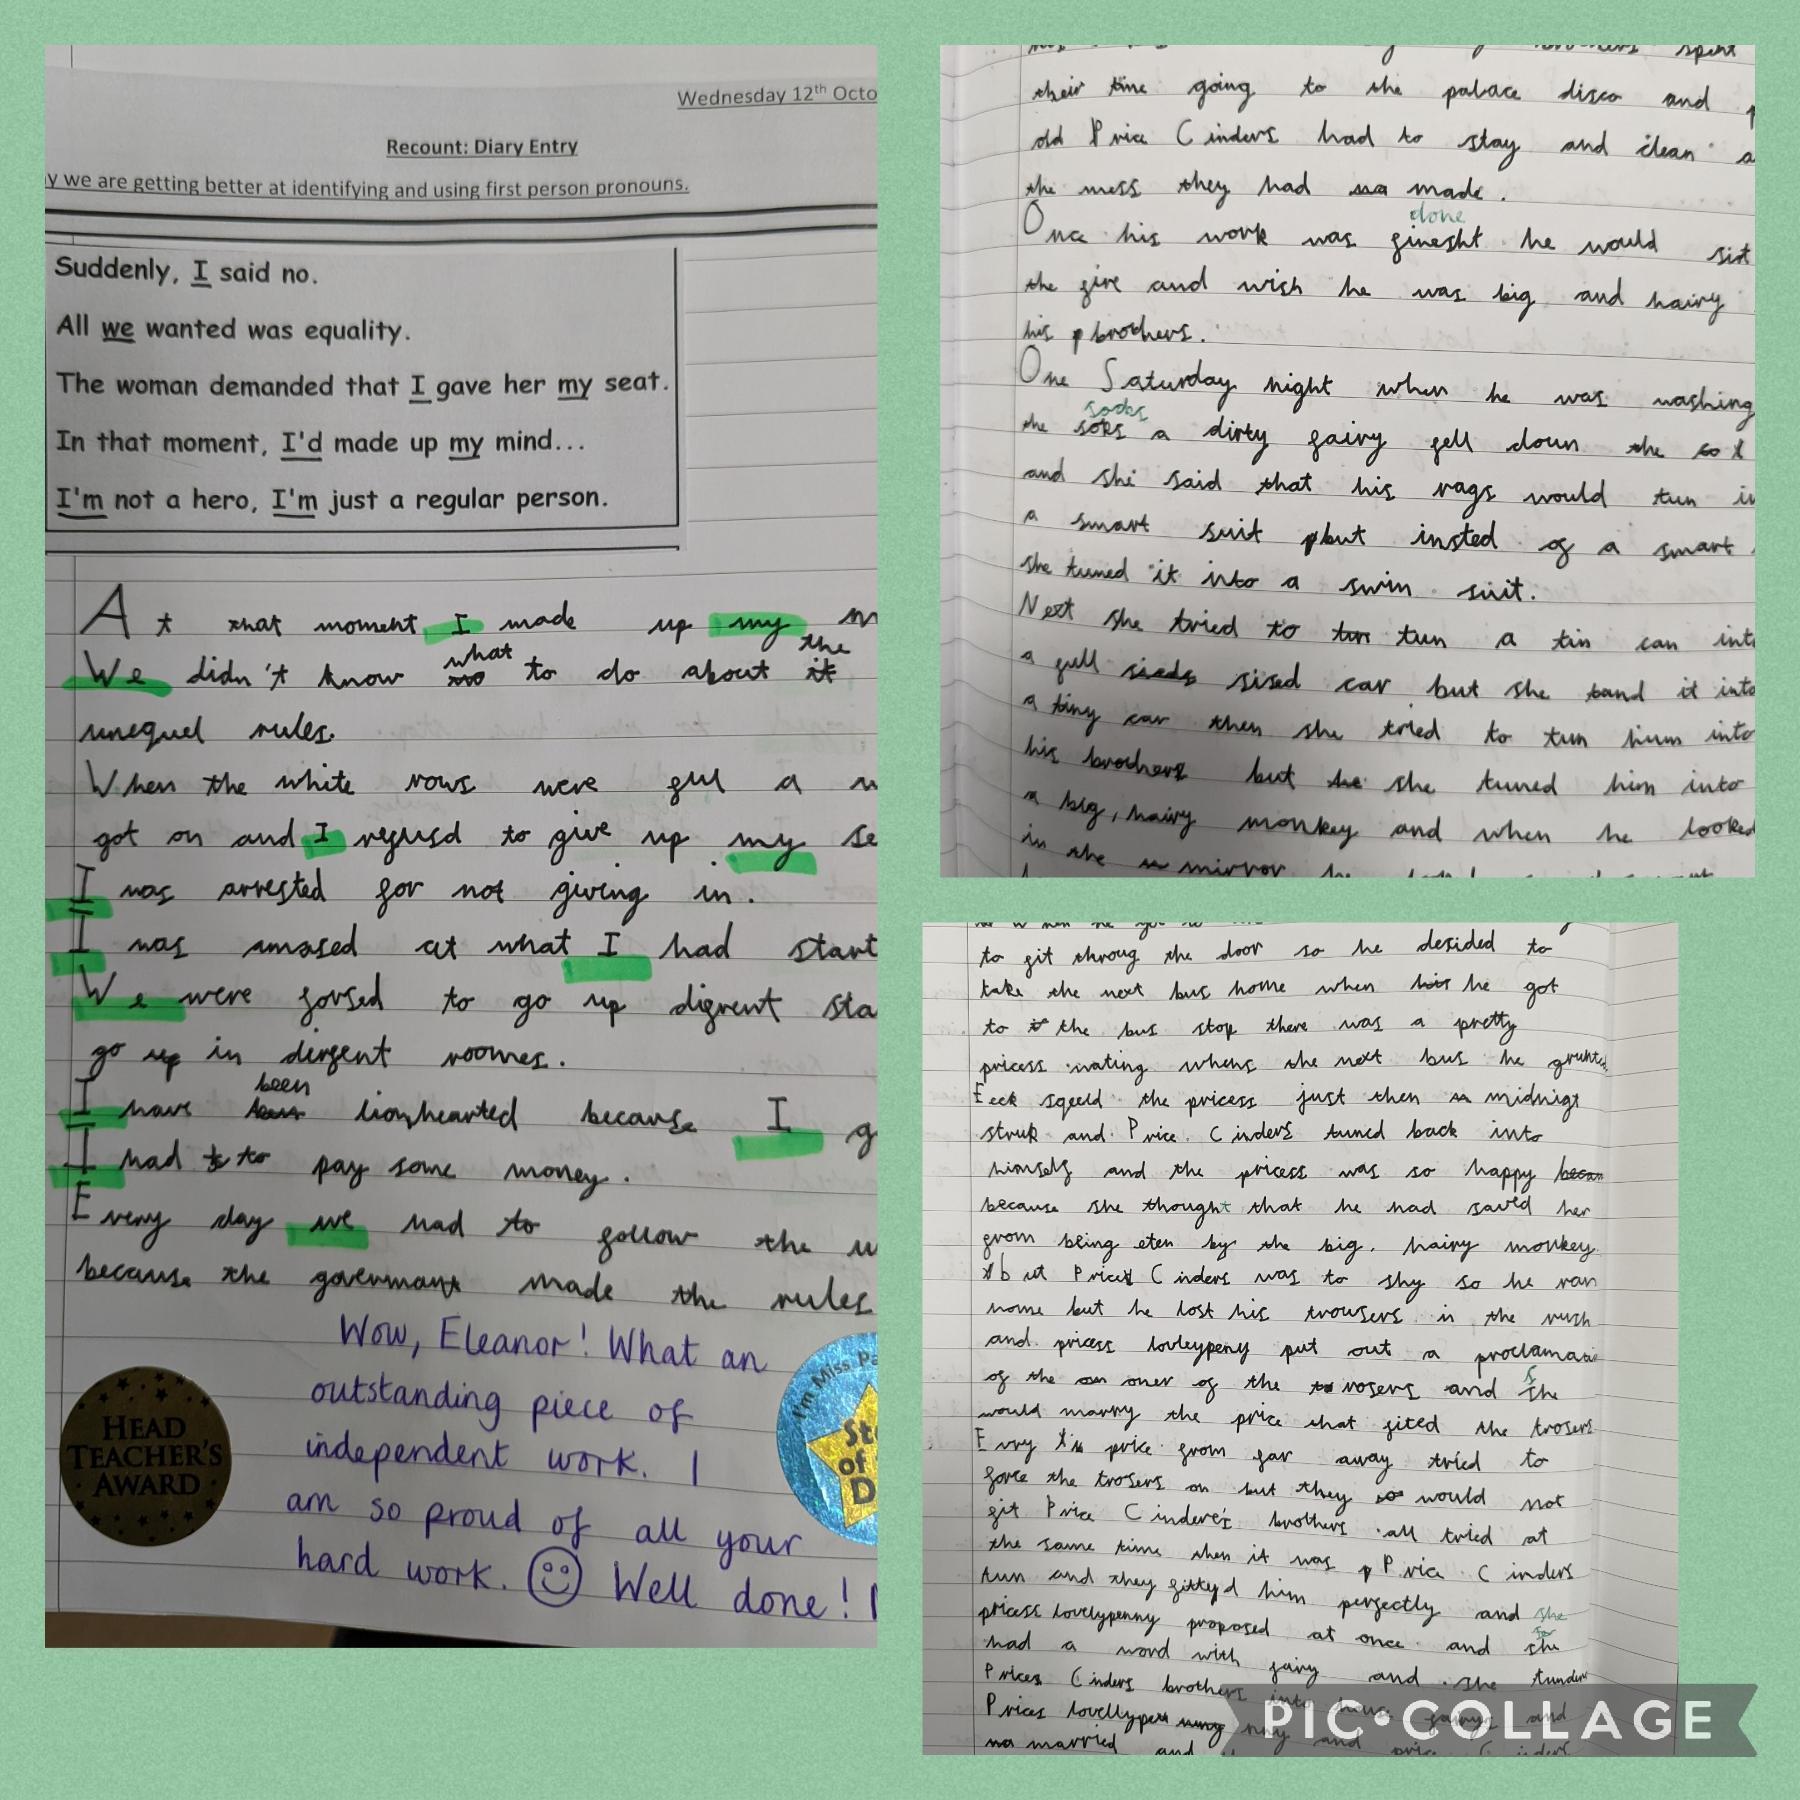 Wednesday 12th Octo
Recount: Diary Entry
y we are getting better at identifying and using first person pronouns.
Suddenly, I said no.
All we wanted was equality.
The woman demanded that I gave her my seat.
In that moment, I'd made up my mind...
I'm not a hero, I'm just a regular person.
At that moment I made up my
the
what
We didn't know to do about it
unequel rules.
When the white rows were full a
got on and I refusd to give up my se
I was arrested for not giving in.
I was amased at what I had start
We were forsed to go up difrent sta
go up in difrent roomes.
been
I have lionhearted because I g
I had to pay some money.
Every day we had to follow the u
because the goverment made the rules
Wow, Eleanor! What an
outstanding piece of
independent work. I
am so proud of all your
hard work. Well done!
HEAD
TEACHER'S
AWARD
I'm Miss Pa
St
of
D
spent
their time going to the palace disco and p
old Price Cinders had to stay and clean
the mess they had made.
done
Once his work was finesht he would sit
the fire and wish he was big and hairy
his brothers.
One Saturday night when he was washing
socks
the soks a dirty fairy fell down the
and she said that his rags would tun in
a smart suit but insted of a smart
she tuned it into a swim suit.
Next she tried to tun a tin can into
a full sised car but she tand it into
a tiny car then she tried to tun him into
his brothers but she tuned him into
a big, hairy monkey and when he looked
in the mirror he
to fit throug the door so he desided to
take the next bus home when he got
to the bus stop there was a pretty
pricess wating whens the next bus he grunted
Eeek sqeeld the pricess just then midnigt
struk and Price Cinders tuned back into
himself and the pricess was so happy
because she thought that he had saved her
from being eten by the big, hairy monkey.
but Price Cinders was to shy so he ran
home but he lost his trousers in the rush
and pricess lovleypeny put out a proclamati
of the oner of the trosers and she
would marry the price that fited the trosers
Evry price from far away tried to
force the trosers on but they would not
fit Price Cindere's brothers all tried at
the same time then it was Price Cinders
tun and they fitty'd him perfectly and she
pricess lovelypenny proposed at once and she
had a word with fairy and she tunder
Prices Cinders brothers into
Prices lovelly and price Cinders
married and
PIC•COLLAGE